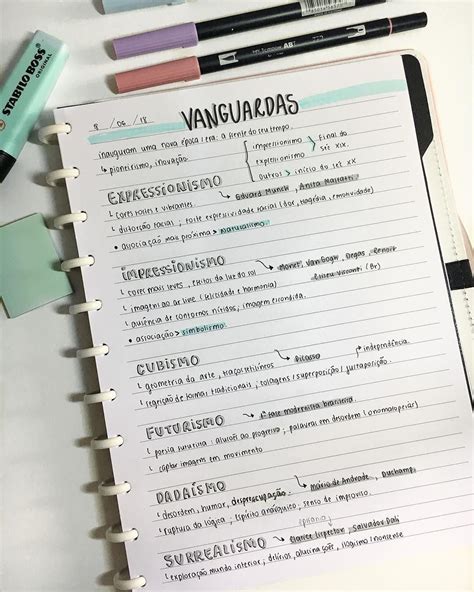 STABILO BOSS
ORIGINAL
ABT
8 / 06 / 18
VANGUARDAS
inauguram uma nova época / era: à frente do seu tempo.
↳ pioneirismo, inovação.
impressionismo > Final do
expressionismo séc XIX.
Outros > início do séc XX
EXPRESSIONISMO → Edvard Munch, Anita Malfatti
↳ cores fortes e vibrantes
↳ distorção facial; forte expressividade facial (dor, tragédia, emotividade)
• associação mais próxima > naturalismo
IMPRESSIONISMO → Monet, Van Gogh, Degas, Renoir
↳ cores mais leves, efeitos da luz do sol Eliseu Visconti (Br)
↳ imagem ao ar livre (felicidade e harmonia)
↳ ausência de contornos nítidos; imagem escondida.
• associação > simbolismo
CUBISMO → Picasso → independência.
↳ geometria da arte, traços retilíneos
↳ rejeição de formas tradicionais; colagens / superposição / justaposição.
FUTURISMO → 1ª fase modernista brasileira
↳ poesia futurista: alusões ao progresso; palavras em desordem (onomatopeias)
↳ captar imagem em movimento
DADAÍSMO → Mário de Andrade, Duchamp.
↳ desordem, humor, despreocupação.
↳ ruptura da lógica; espírito anárquico; senso de improviso.
SURREALISMO → Clarice Lispector, Salvador Dalí
↳ exploração mundo interior; delírios, alucinações, ilógismo / nonsense